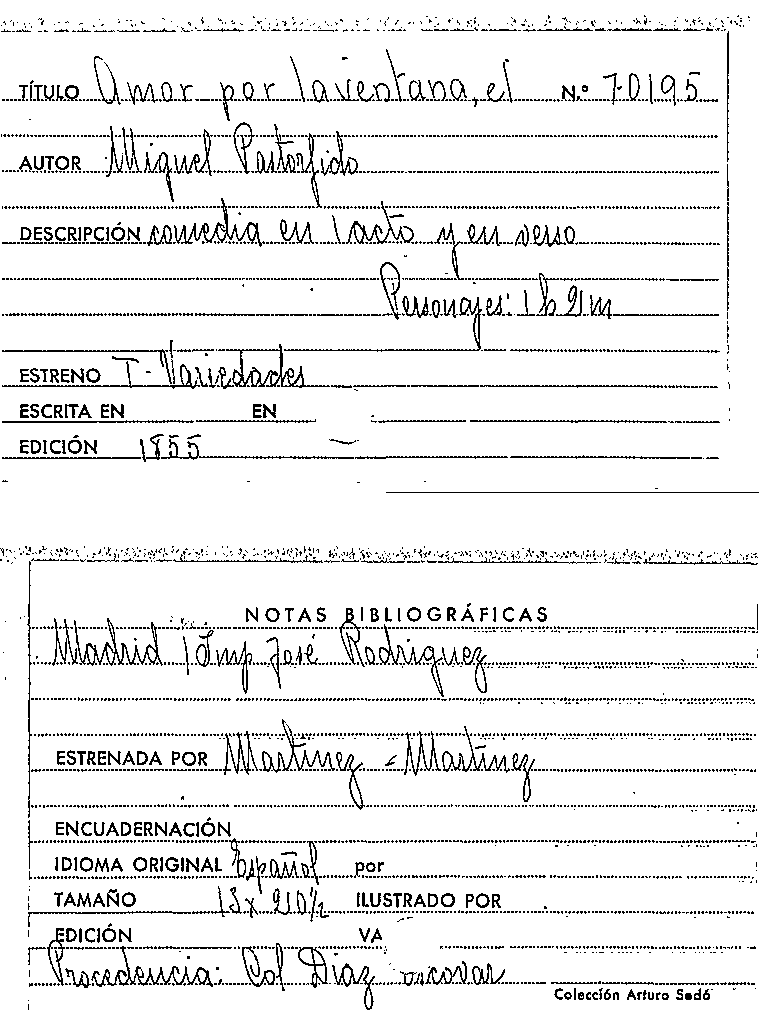 TÍTULO Amor por la ventana, el N.º 70195
AUTOR Miguel Pastorfido
DESCRIPCIÓN comedia en 1 acto y en verso
Personajes: 1 h 2 m
ESTRENO T- Variedades
ESCRITA EN EN
EDICIÓN 1855
NOTAS BIBLIOGRÁFICAS
Madrid / Imp José Rodriguez
ESTRENADA POR Martinez - Martinez
ENCUADERNACIÓN
IDIOMA ORIGINAL Español por
TAMAÑO ILUSTRADO POR
EDICIÓN VA
Procedencia: Col Diaz escovar
Colección Arturo Sedó